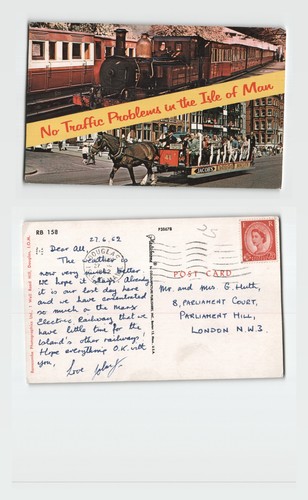 No Traffic Problems in the Isle of Man
RB 158
27.6.62
Dear All,
The weather is
now very much better.
We hope it stays. Already
it is our last day here
and we have concentrated
so much on the Manx
Electric Railway that we
have little time for the
island's other railways.
Hope everything O.K. with
you,
Love John
DOUGLAS
POST CARD
Mr. and Mrs. G. Huth,
8, PARLIAMENT COURT,
PARLIAMENT HILL,
LONDON N.W.3.